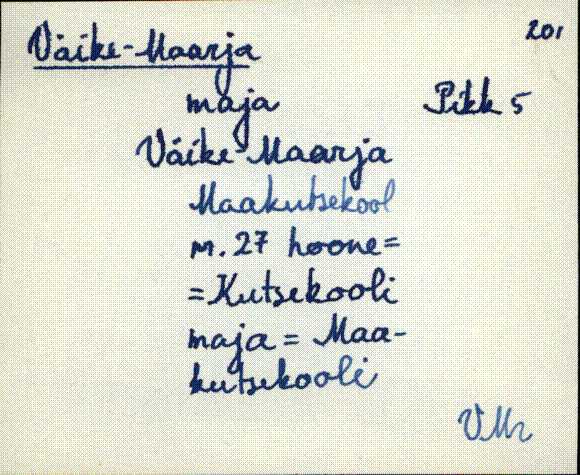 201
Väike-Maarja
maja Pikk 5
Väike-Maarja
Maakutsekool
m. 27 hoone=
=Kutsekooli
maja = Maa-
kutsekooli
VMr